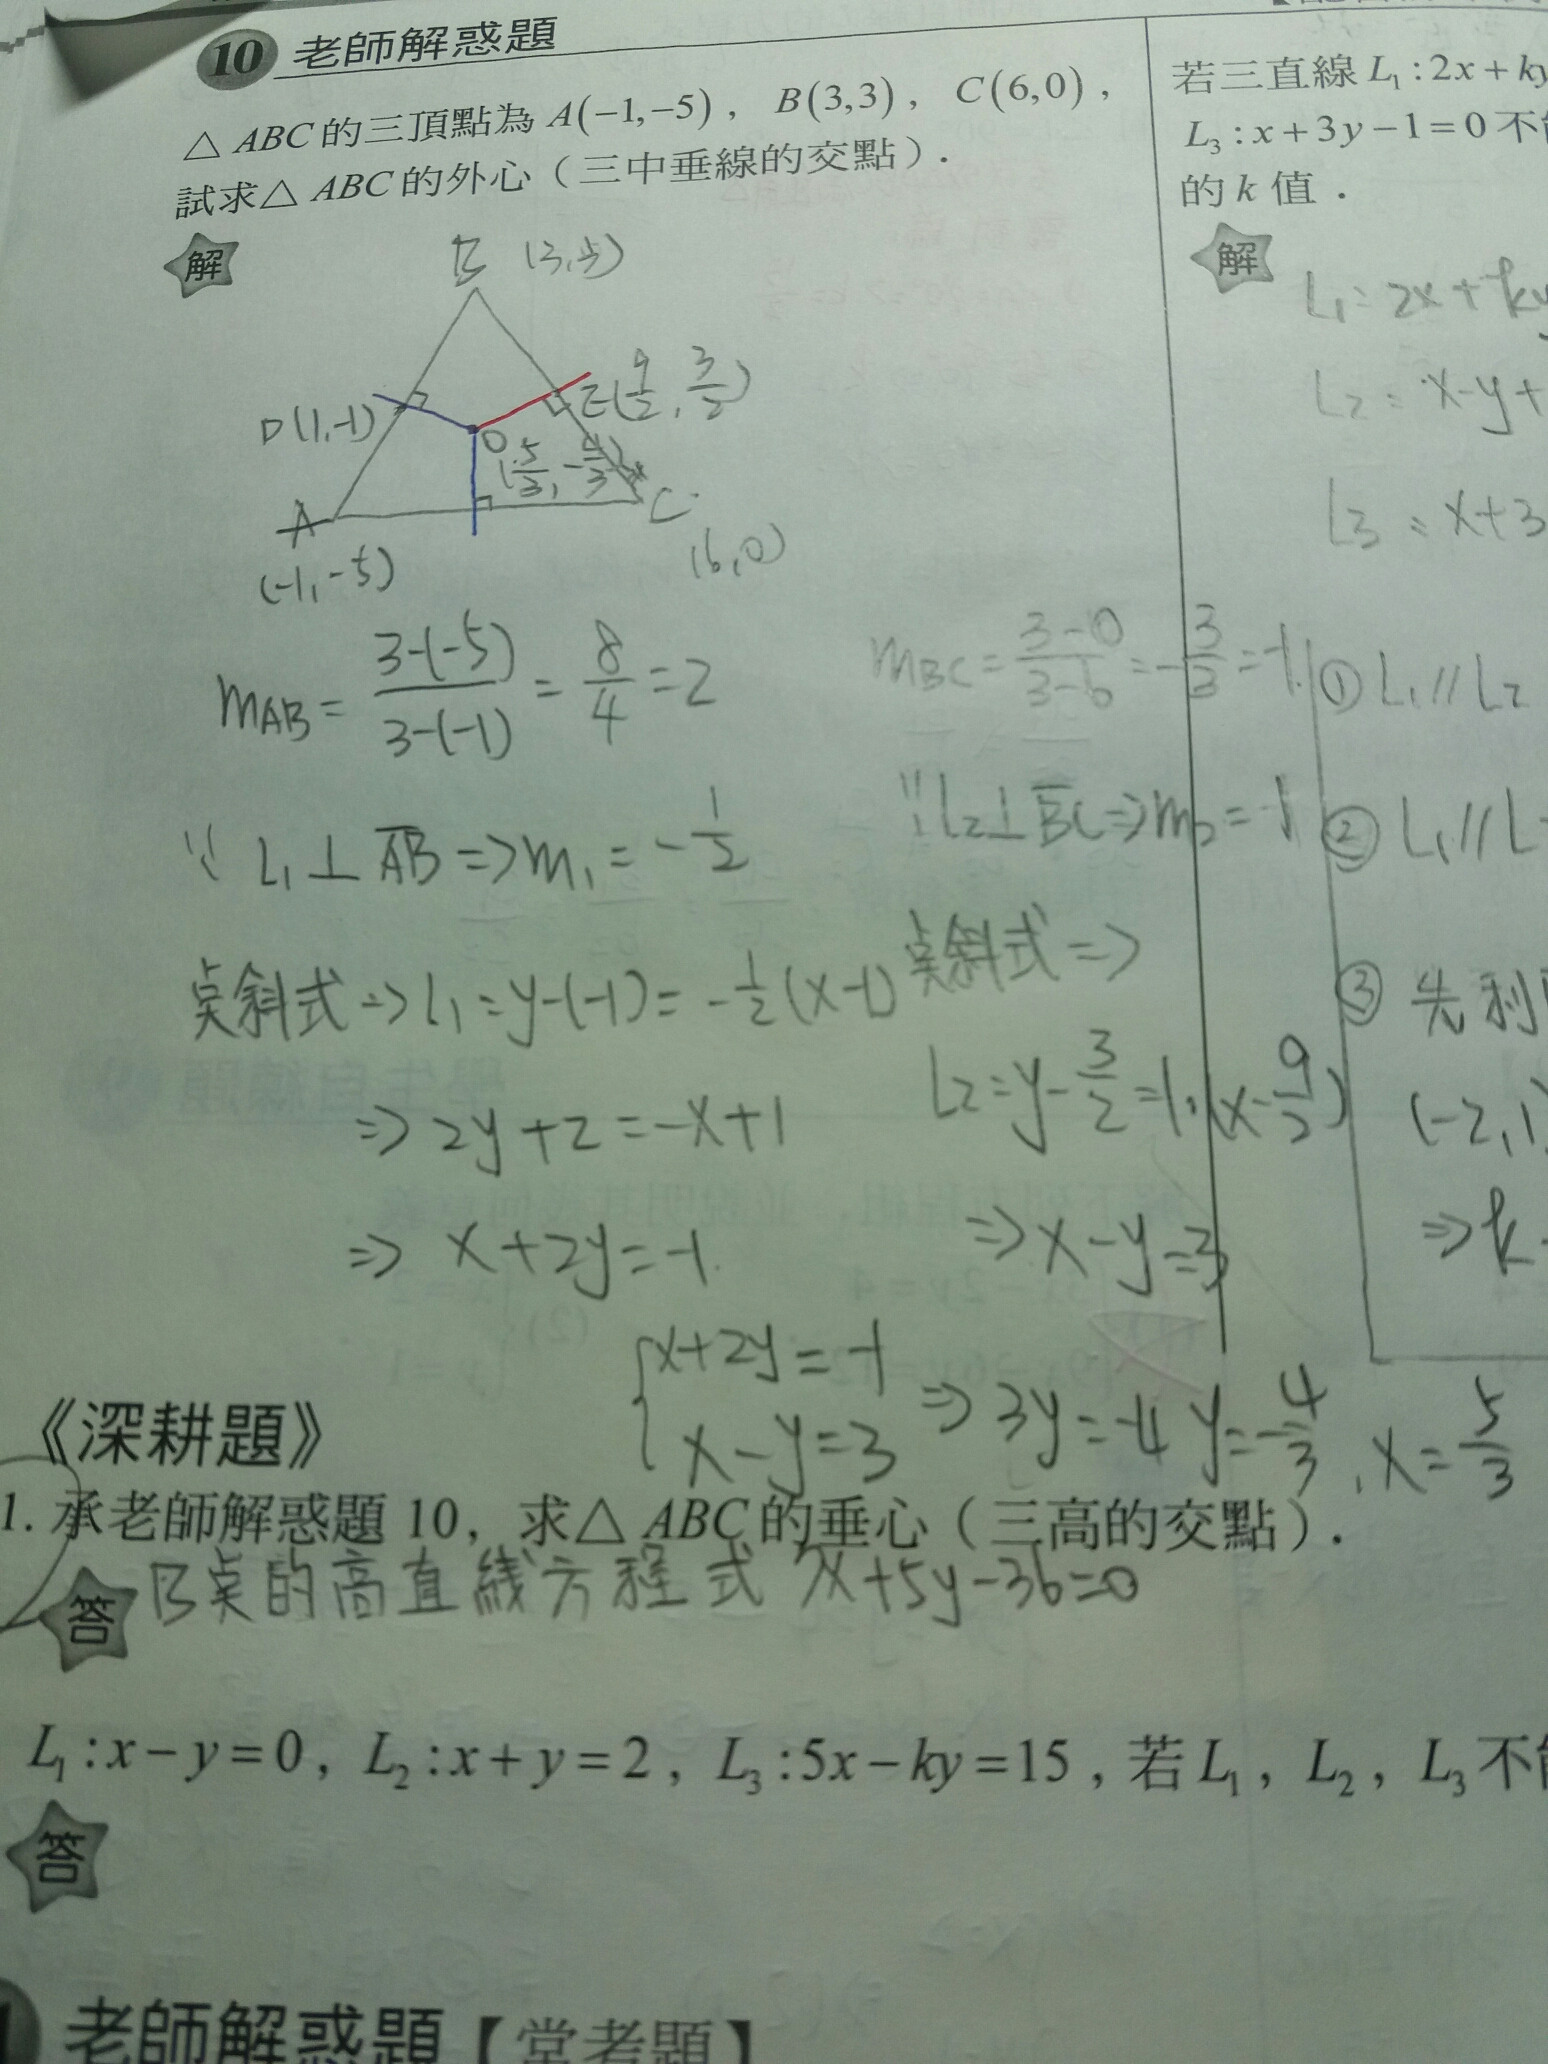 10 老師解惑題
△ABC的三頂點為 A(−1,−5), B(3,3), C(6,0),
試求△ABC的外心(三中垂線的交點).
解
B (3,3)
D(1,-1)
E(9/2, 3/2)
O
(5/3, -4/3)
A
(-1,-5)
C
(6,0)
mAB = 3-(-5)/3-(-1) = 8/4 = 2
∵ L₁⊥A̅B̅ => m₁ = -1/2
点斜式 => L₁ = y-(-1) = -1/2(x-1)
=> 2y+2 = -x+1
=> x+2y = -1
mBC = 3-0/3-6 = -3/3 = -1
∵ L₂⊥B̅C̅ => m₂ = 1
点斜式 =>
L₂ = y-3/2 = 1·(x-9/2)
=> x-y=3
{x+2y=-1
x-y=3 => 3y=-4 y=-4/3, x=5/3
若三直線 L₁:2x+ky
L₃:x+3y−1=0 不
的 k 值.
解
L₁: 2x+ky
L₂ = x-y+
L₃ = x+3
① L₁//L₂
② L₁//L
③ 先利
(-2,1)
=> k
《深耕題》
1. 承老師解惑題 10, 求△ABC的垂心(三高的交點).
答 B点的高直線方程式 7x+5y-36=0
L₁:x−y=0, L₂:x+y=2, L₃:5x−ky=15, 若 L₁, L₂, L₃ 不
答
老師解惑題【常考題】